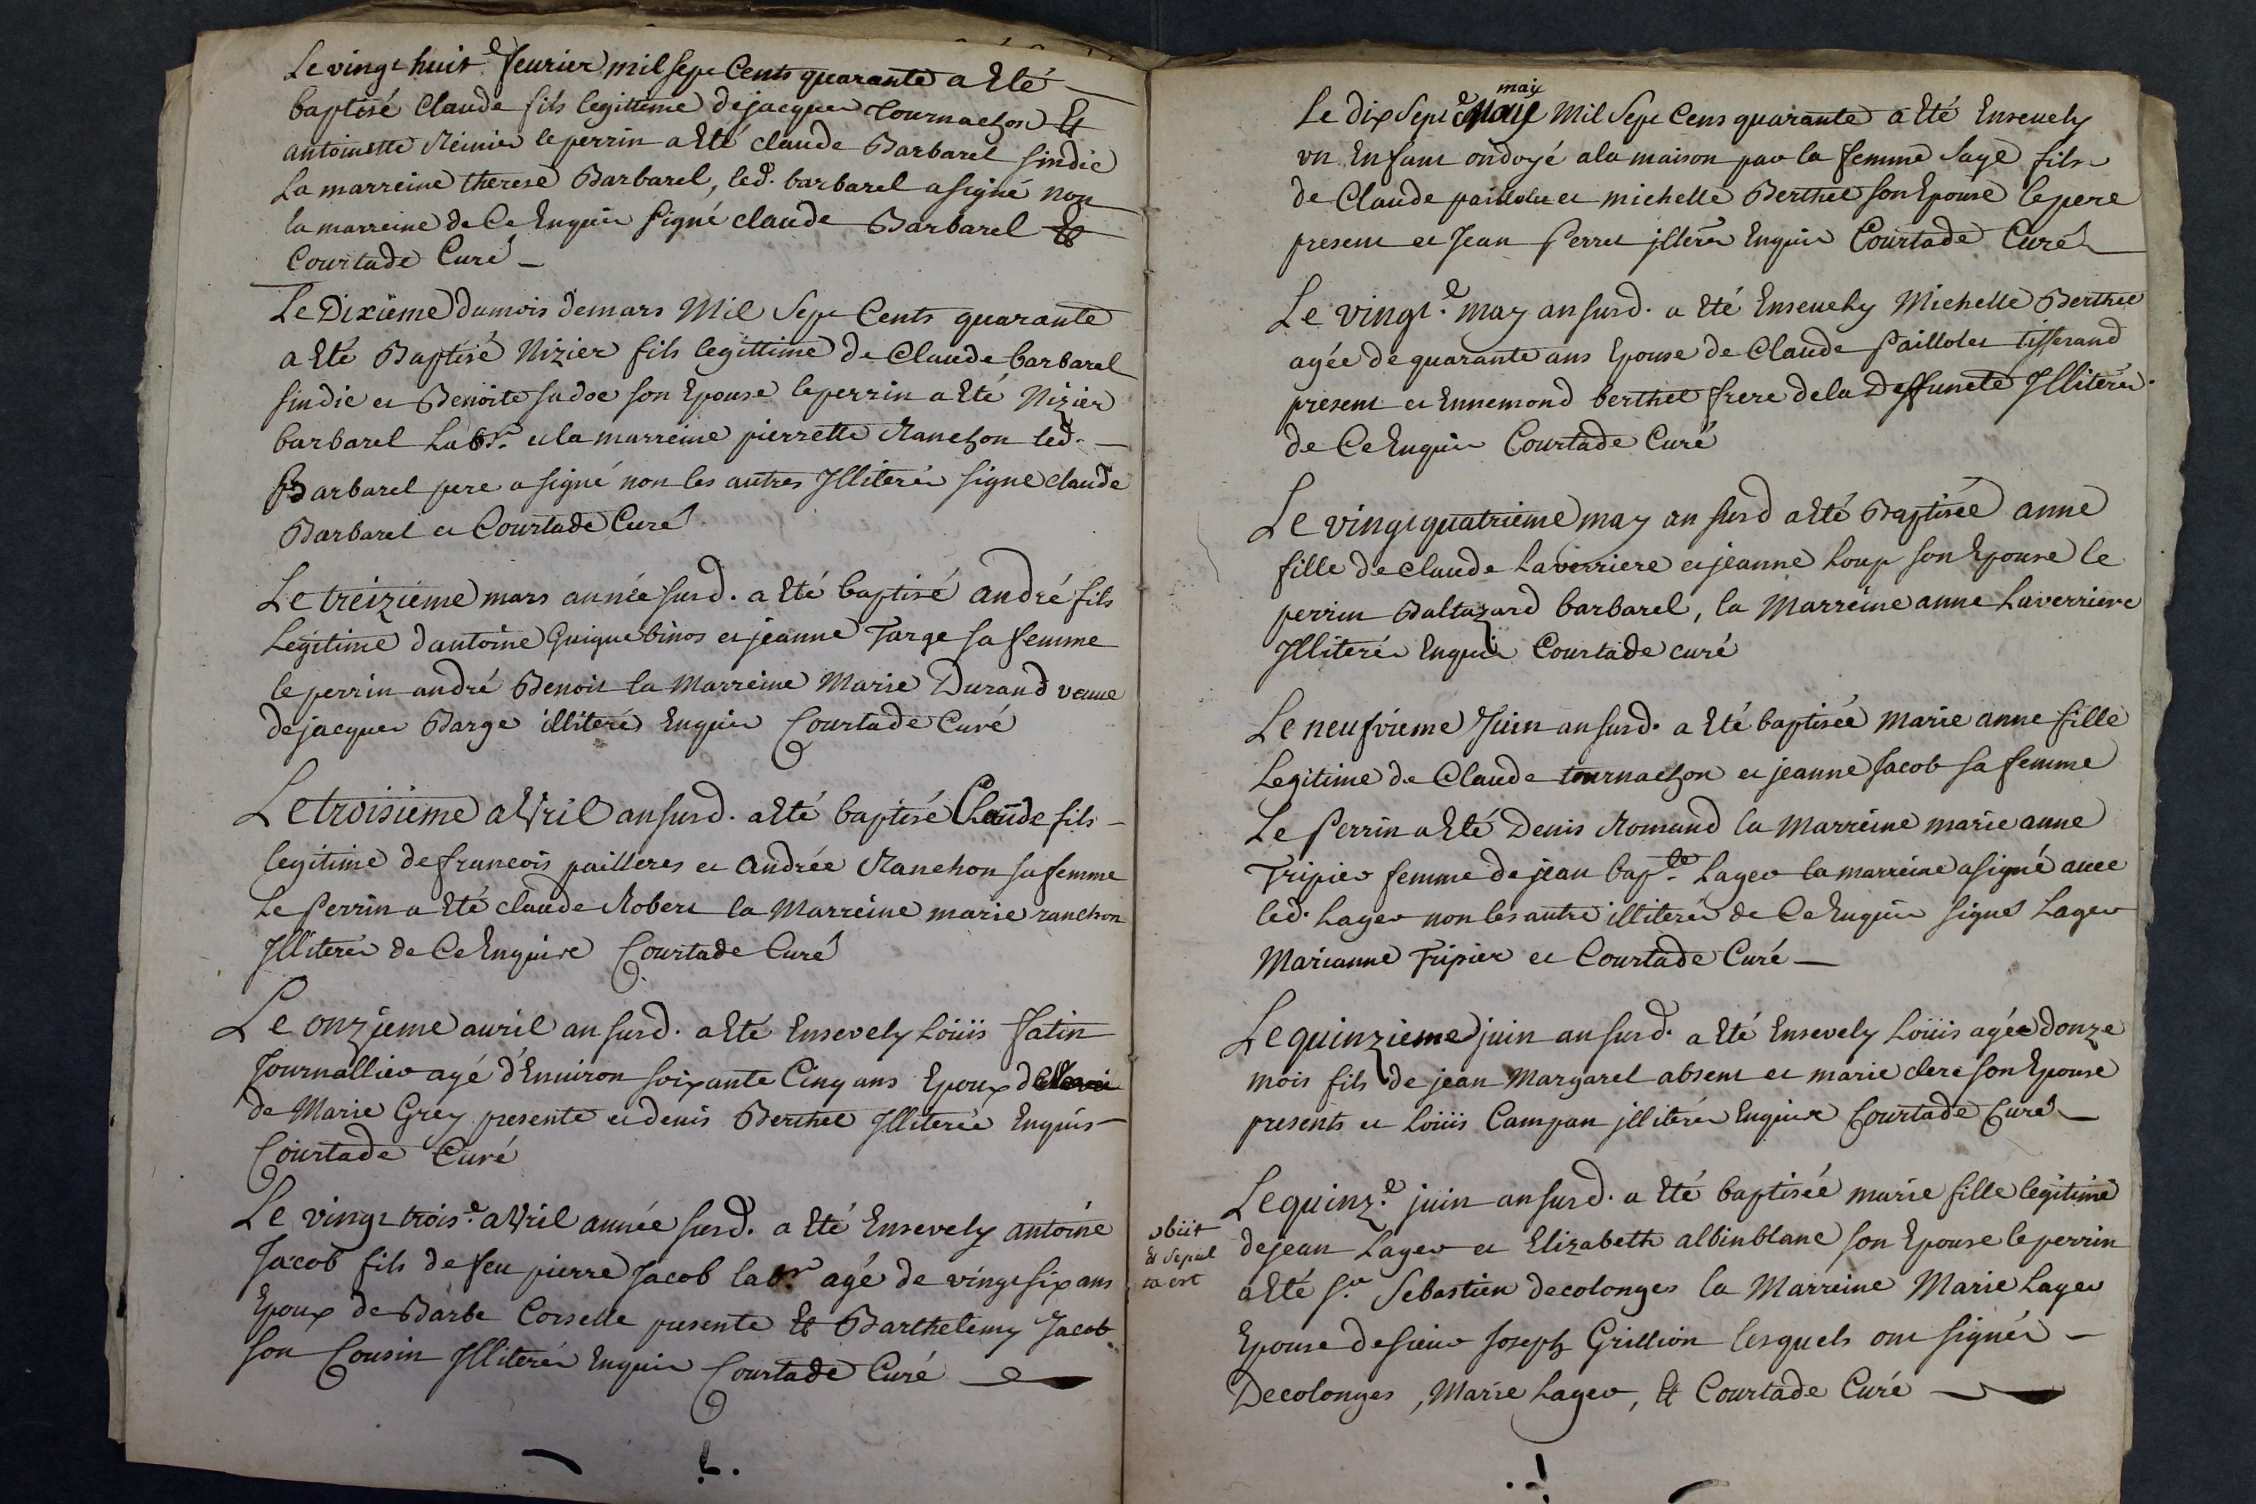 Le vingt huit.e feurier mil sept Cents quarante a Eté
baptisé Claude fils legittime de jacques Tournachon Et
antoinette Reinier le perrin a Eté claude Barbarel sindic
La marreine therese Barbarel, led. barbarel a signé non
la marreine de Ce Enquise signé claude Barbarel Et
Courtade Curé
Le Dixiéme du mois de mars Mil Sept Cents quarante
a Eté Baptisé Nizier fils legittime de Claude barbarel
sindic et Benoite sadoc son Epouse le perrin a Eté Nizier
barbarel Labr. et la marreine pierrette Ranchon led.
Barbarel pere a signé non les autres Illiterés signe claude
Barbarel et Courtade Curé
Le treizieme mars année susd. a Eté baptisé andré fils
Legitime d'antoine Guigue binos et jeanne Farge sa femme
le perrin andré Benoit la Marreine Marie Durand veuue
de jacques Barge illiteré Enquis Courtade Curé
Le troisieme aVril an susd. a Eté baptisé Claude fils
legitime de francois pailleres et andrée Ranchon sa femme
Le Perrin a Eté claude Robert la Marreine marie ranchon
Illiterés de Ce Enquise Courtade Curé
Le onzieme auril an susd. a Eté Ensevely Loüis fatin
Journallier agé d'Enuiron soixante Cinq ans Epoux
de Marie Grey presente et denis Berthet Illiterée Enquis
Courtade Curé
Le vingt trois.e aVril année susd. a Eté Ensevely antoine
Jacob fils de feu pierre Jacob labr. agé de vingt six ans
Epoux de Barbe Corselle presente Et Barthelemy Jacob
son Cousin Illiterés Enquis Courtade Curé
Le dix Sept.e may Mil Sept Cens quarante a Eté Enseuely
vn Enfant ondoyé a la maison par la femme sage fils
de Claude paillolet et michelle Berthet son Epouse le pere
present et Jean Perret jlleterés Enquis Courtade Curé
Le vingt.e may an susd. a Eté Enseuely Michelle Berthet
agée de quarante ans Epouse de Claude Paillolet tisserand
present et Ennemond berthet frere de la Deffuncte Illiterés
de Ce Enquis Courtade Curé
Le vingt quatrieme may an susd a Eté Baptisée anne
fille de claude Laverriere et jeanne Loup son Epouse le
perrin Baltazard barbarel, la Marreine anne Laverriere
Illiterés Enquis Courtade curé
Le neufvieme Juin an susd. a Eté baptisée marie anne fille
Legitime de Claude tournachon et jeanne Jacob sa femme
Le Perrin a Eté Denis Romand la Marreine marie anne
Tripier femme de jean bap.te Lager la marreine a signé auec
led. Lager non les autre illiterés de Ce Enquis signé Lager
Marianne Tripier et Courtade Curé
Le quinzieme juin an susd. a Eté Ensevely Loüis agée donze
mois fils de jean Margarel absent et marie clere son Epouse
presents et Loüis Campan jlliterés Enquis Courtade Curé
obiit
Et Sepul
ta est
Le quinz.e juin an susd. a Eté baptisée marie fille legitime
de jean Lager et Elizabeth albinblanc son Epouse le perrin
a Eté sr. Sebastien decolonges la Marreine Marie Lager
Epouse de sieur Joseph Grillion lesquels ont signés
Decolonges, Marie Lager, Et Courtade Curé